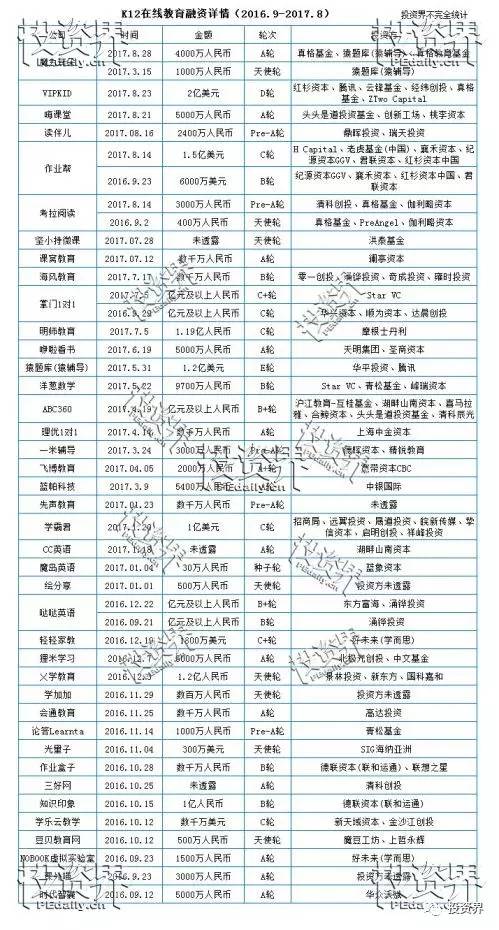 K12在线教育融资详情（2016.9-2017.8）
投资界不完全统计
公司 时间 金额 轮次 投资方
2017.8.28 4000万人民币 A轮 真格基金、猿题库(猿辅导)、真格教育基金
2017.3.15 1000万人民币 天使轮 猿题库(猿辅导)
VIPKID 2017.8.23 2亿美元 D轮 红杉资本、腾讯、云锋基金、经纬创投、真格
基金、ZTwo Capital
嗨课堂 2017.8.21 5000万人民币 A轮 头头是道投资基金、创新工场、桃李资本
读伴儿 2017.08.16 2400万人民币 Pre-A轮 鼎晖投资、瑞天投资
作业帮 2017.8.14 1.5亿美元 C轮 H Capital、老虎基金(中国)、襄禾资本、纪
源资本GGV、君联资本、红杉资本中国
2016.9.23 6000万美元 B轮 纪源资本GGV、襄禾资本、红杉资本中国、君
联资本
考拉阅读 2017.8.14 3000万人民币 Pre-A轮 清科创投、真格基金、伽利略资本
2016.9.2 400万人民币 天使轮 真格基金、PreAngel、伽利略资本
坚小持微课 2017.07.28 未透露 天使轮 洪泰基金
课窝教育 2017.07.12 数千万人民币 A轮 澜亭资本
海风教育 2017.7.17 数千万人民币 B轮 零一创投、涌铧投资、奇成投资、雍时投资
掌门1对1 2017.7.5 亿元及以上人民币 C+轮 Star VC
2016.9.29 亿元及以上人民币 C轮 华兴资本、顺为资本、达晨创投
明师教育 2017.7.5 1.19亿人民币 C轮 摩根士丹利
咿啦看书 2017.6.19 5000万人民币 A轮 天明集团、圣商资本
猿题库(猿辅导) 2017.5.31 1.2亿美元 E轮 华平投资、腾讯
洋葱数学 2017.5.22 9700万人民币 B轮 Star VC、青松基金、峰瑞资本
ABC360 2017.4.19 亿元及以上人民币 B+轮 沪江教育-互桂基金、湖畔山南资本、喜马拉
雅、合鲸资本、头头是道投资基金、清科辰光
理优1对1 2017.4.14 数千万人民币 A轮 上海中金资本
一米辅导 2017.3.24 3000万人民币 Pre-A轮 德晖资本、精锐教育
飞博教育 2017.04.05 2000万人民币 A+轮 宽带资本CBC
蓝帕科技 2017.3.9 5400万人民币 A轮 中银国际
先声教育 2017.01.23 数千万人民币 Pre-A轮 未透露
学霸君 2017.1.20 1亿美元 C轮 招商局、远翼投资、晟道投资、皖新传媒、挚
信资本、启明创投、祥峰投资
CC英语 2017.1.18 未透露 A轮 湖畔山南资本
魔岛英语 2017.01.04 30万人民币 种子轮 蓝象资本
绘分享 2017.01.01 500万人民币 天使轮 投资方未透露
哒哒英语 2016.12.22 亿元及以上人民币 B+轮 东方富海、涌铧投资
2016.09.21 亿元及以上人民币 B轮 涌铧投资
轻轻家教 2016.12.19 1800万美元 C+轮 好未来(学而思)
狸米学习 2016.12.7 6000万人民币 A轮 北极光创投、中文基金
乂学教育 2016.12.3 1.2亿人民币 天使轮 景林投资、新东方、国科嘉和
学加加 2016.11.29 数百万人民币 天使轮 投资方未透露
会通教育 2016.11.25 数千万人民币 A轮 高达投资
论答Learnta 2016.11.14 1000万人民币 Pre-A轮 青松基金
光量子 2016.11.04 300万美元 天使轮 SIG海纳亚洲
作业盒子 2016.10.28 数千万人民币 B轮 德联资本(联和运通)、联想之星
三好网 2016.10.25 未透露 A轮 清科创投
知识印象 2016.10.15 1亿人民币 B轮 德联资本(联和运通)
学乐云教学 2016.10.12 数千万美元 C轮 新天域资本、金沙江创投
豆贝教育网 2016.10.12 500万人民币 天使轮 魔豆工坊、上哲永辉
NOBOOK虚拟实验室 2016.09.23 1500万人民币 A轮 好未来(学而思)
2016.9.23 3000万人民币 A轮 投资方未透露
时代智囊 2016.09.12 5000万人民币 A轮 华众沃诚
投资界
PEdaily.cn
投资界